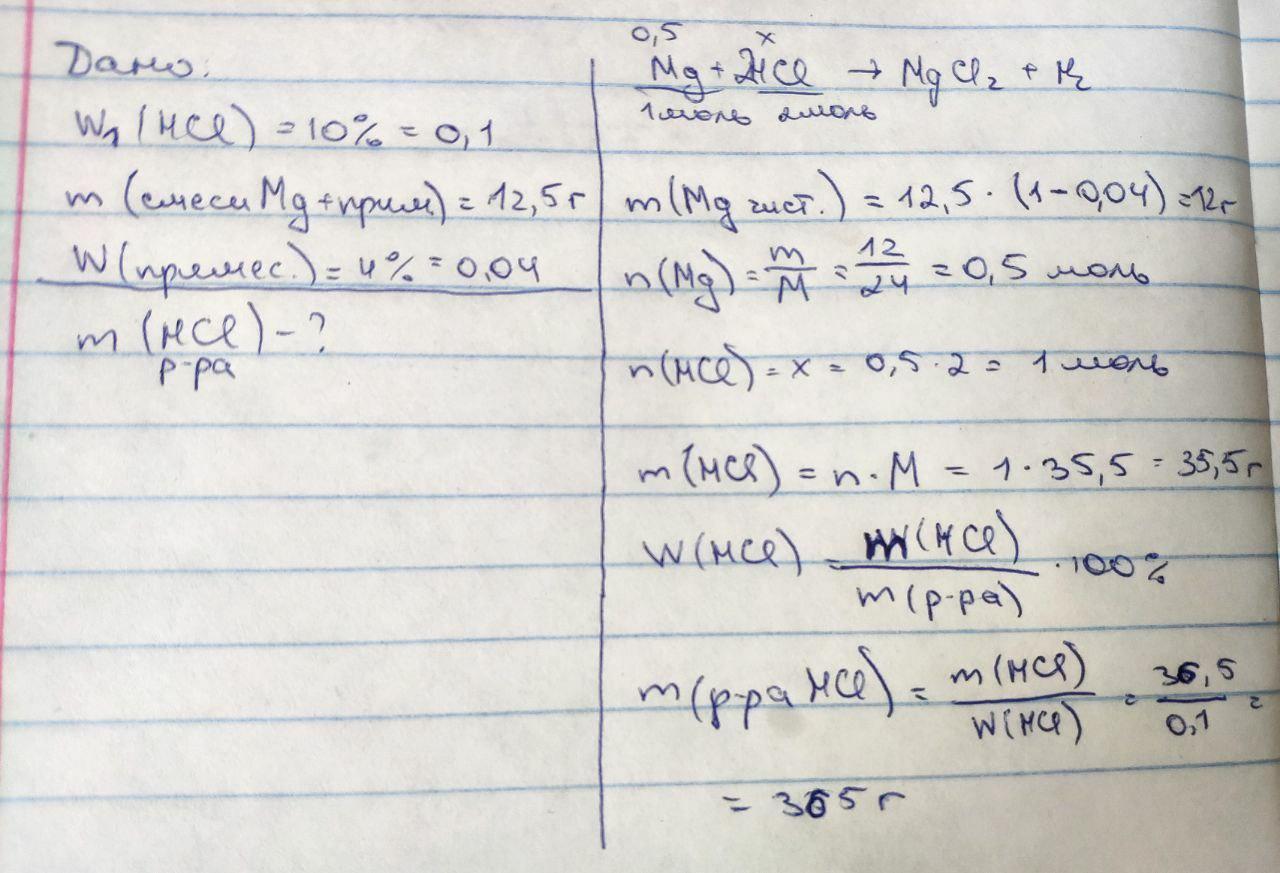 Дано:
W₁ (HCl) = 10% = 0,1
m (смеси Mg + прим) = 12,5 г
W (примес.) = 4% = 0,04
m (HCl) - ?
р-ра
0,5 x
Mg + 2HCl → MgCl₂ + H₂
1моль 2моль
m(Mg чист.) = 12,5 · (1-0,04) = 12г
n(Mg) = m/M = 12/24 = 0,5 моль
n(HCl) = x = 0,5 · 2 = 1 моль
m(HCl) = n · M = 1 · 35,5 = 35,5 г
W(HCl) = m(HCl)/m(р-ра) · 100%
m(р-ра HCl) = m(HCl)/W(HCl) = 36,5/0,1 =
= 365 г